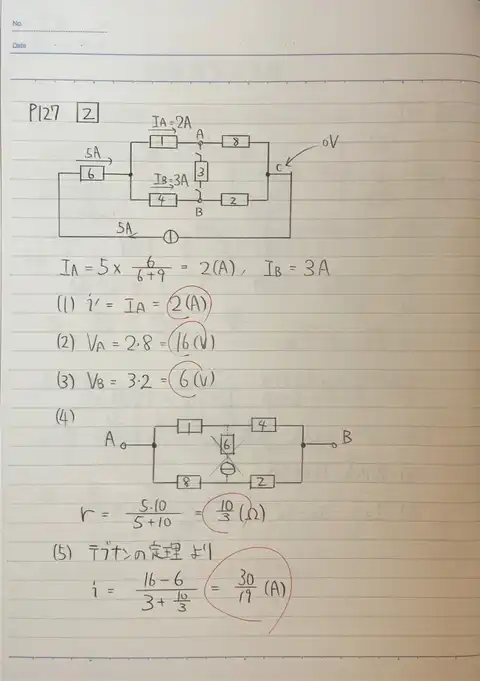 No.
Date
P127 2
IA=2A
1
A
8
0V
5A
6
3
C
IB=3A
4
B
2
5A
IA = 5 × 6/(6+9) = 2(A), IB = 3A
(1) i' = IA = 2(A)
(2) VA = 2・8 = 16(V)
(3) VB = 3・2 = 6(V)
(4)
1
4
A
6
B
8
2
r = 5・10/(5+10) = 10/3 (Ω)
(5) テブナンの定理より
i = (16-6)/(3+10/3) = 30/19 (A)